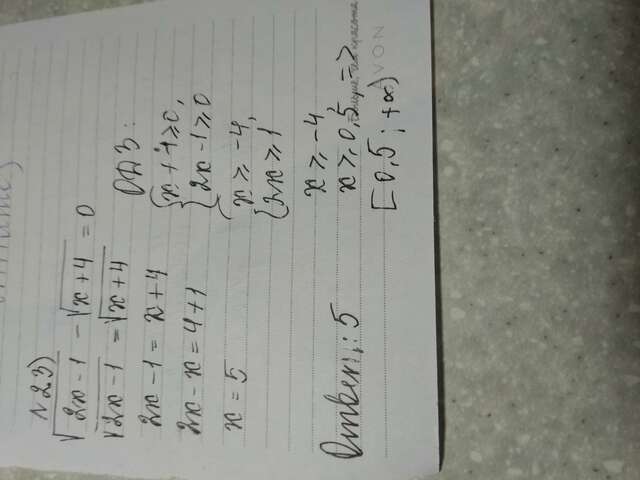 №23)
√2x-1 - √x+4 = 0
√2x-1 = √x+4
2x-1 = x+4
2x-x = 4+1
x = 5
ОДЗ:
{x+4≥0,
{2x-1≥0
{x≥-4,
{2x≥1
x≥-4
x≥0,5 =>
[0,5; +∞)
Ответ: 5
AVON